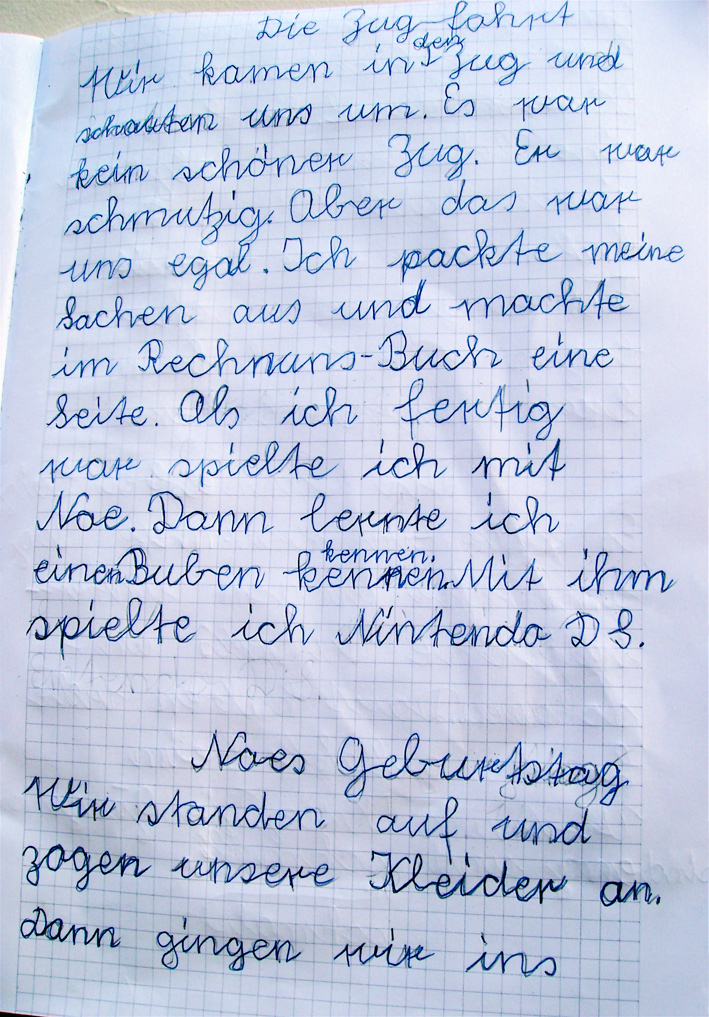 Die Zugfahrt
Wir kamen in den Zug und
schauten uns um. Es war
kein schöner Zug. Er war
schmutzig. Aber das war
uns egal. Ich packte meine
Sachen aus und machte
im Rechnuns-Buch eine
Seite. Als ich fertig
war spielte ich mit
Noe. Dann lernte ich
einen Buben kennen. Mit ihm
spielte ich Nintendo DS.
Noes Geburtstag
Wir standen auf und
zogen unsere Kleider an.
Dann gingen wir ins